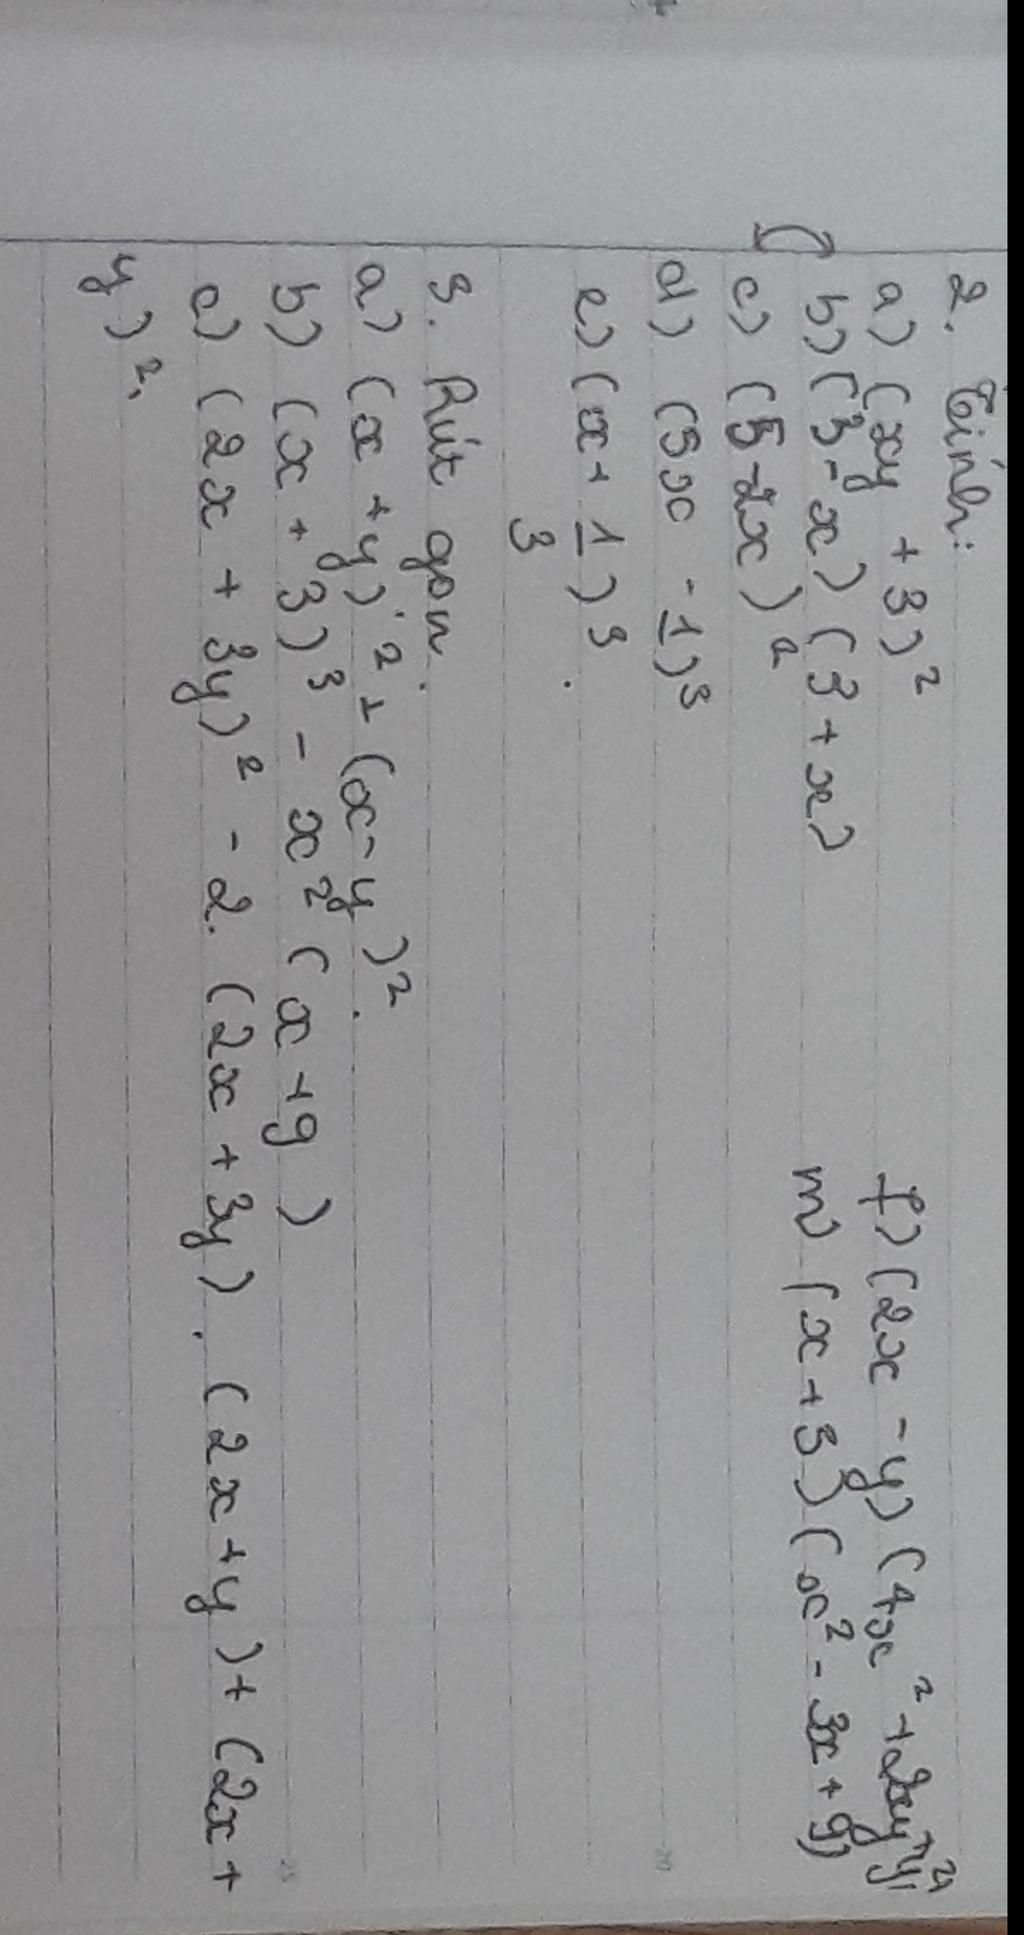 2. Tính:
a) (xy + 3)² f) (2x - y) (4x² + 2xy + y²)
b) (3 - x) (3 + x) m) (x + 3) (x² - 3x + 9)
c) (5 - 2x)²
d) (5x - 1)³
e) (x + 1/3)³.
3. Rút gọn.
a) (x + y)² + (x - y)².
b) (x + 3)³ - x² (x + 9)
c) (2x + 3y)² - 2. (2x + 3y). (2x + y) + (2x +
y)².